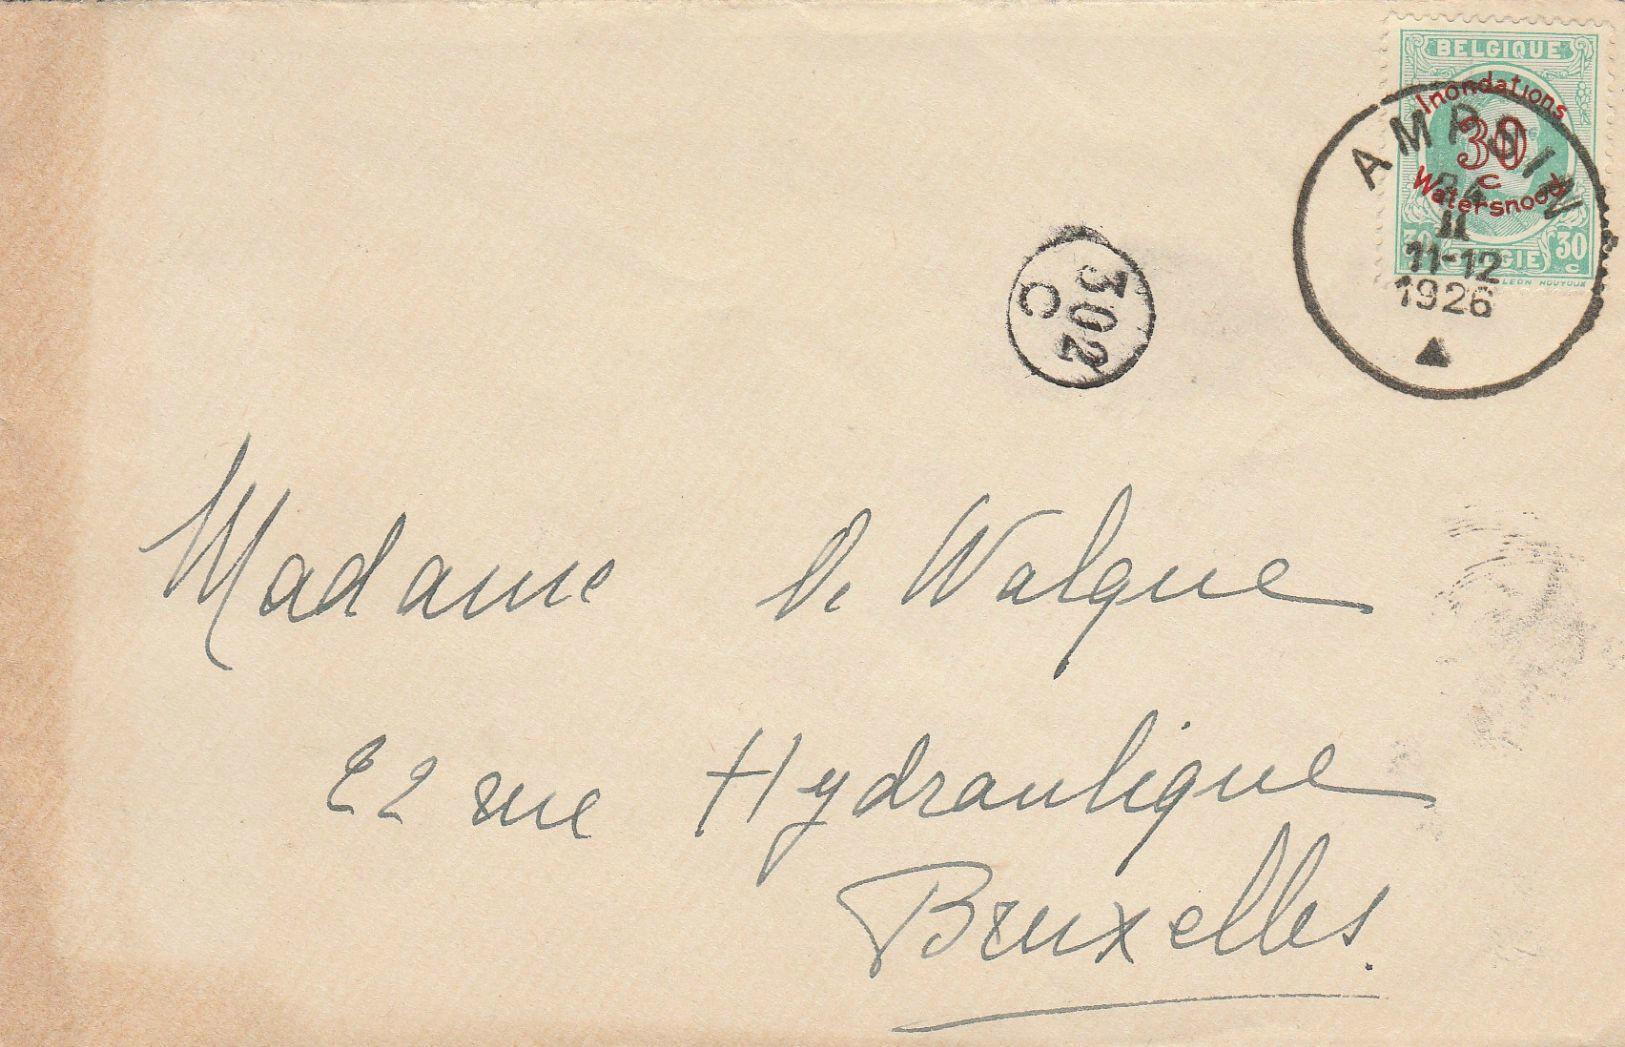 BELGIQUE
Inondations
30
c
Watersnood
30 BELGIE 30
c
LEON HOUYOUX
AMPSIN
24
II
11-12
1926
302
C
Madame de Walque
22 rue Hydraulique
Bruxelles.